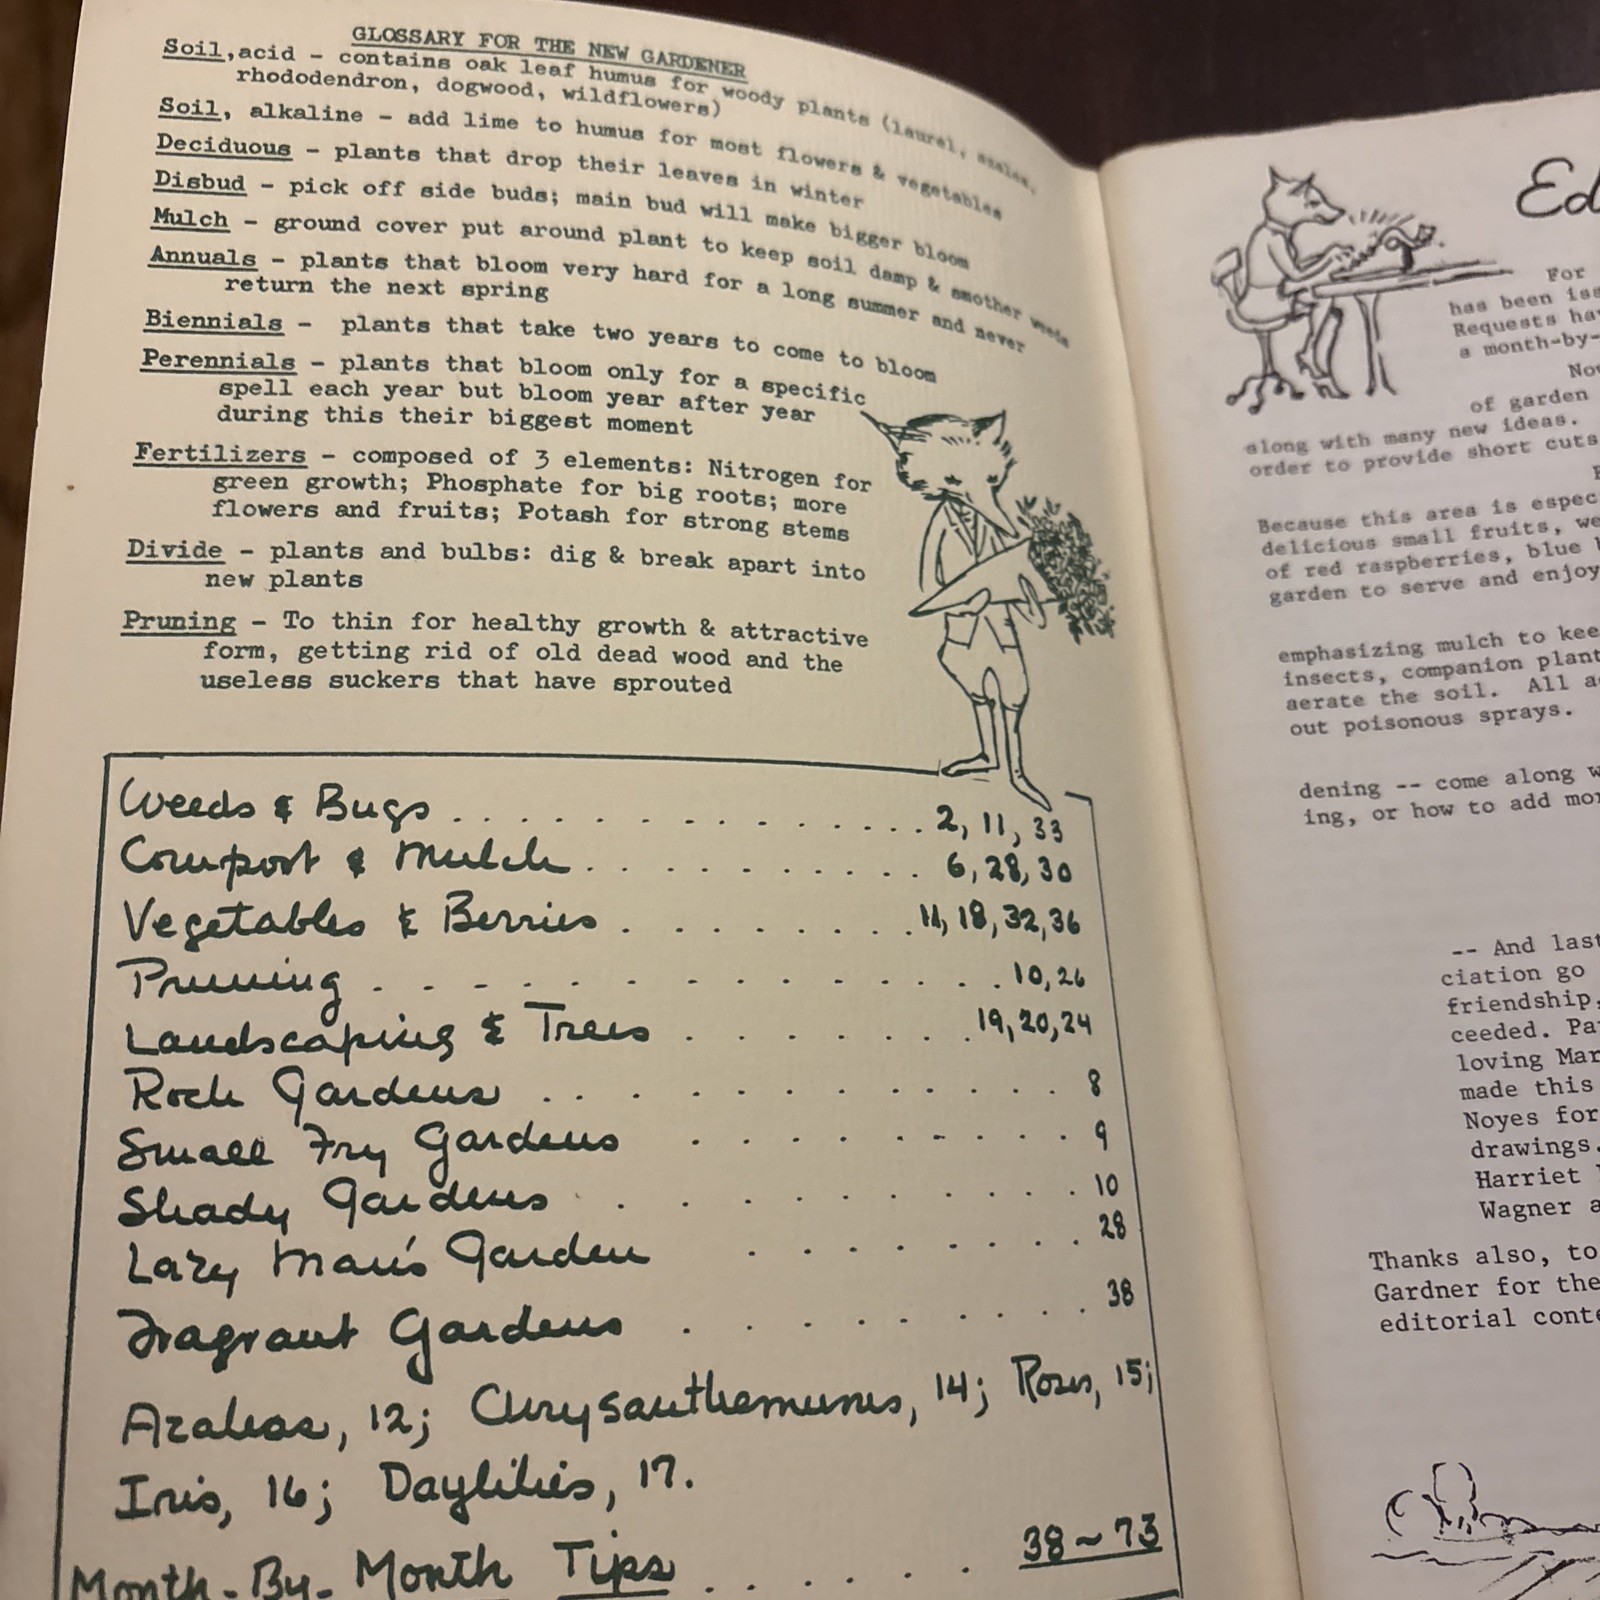 GLOSSARY FOR THE NEW GARDENER
Soil,acid - contains oak leaf humus for woody plants (laurel, azalea,
rhododendron, dogwood, wildflowers)
Soil, alkaline - add lime to humus for most flowers & vegetables
Deciduous - plants that drop their leaves in winter
Disbud - pick off side buds; main bud will make bigger bloom
Mulch - ground cover put around plant to keep soil damp & smother weeds
Annuals - plants that bloom very hard for a long summer and never
return the next spring
Biennials - plants that take two years to come to bloom
Perennials - plants that bloom only for a specific
spell each year but bloom year after year
during this their biggest moment
Fertilizers - composed of 3 elements: Nitrogen for
green growth; Phosphate for big roots; more
flowers and fruits; Potash for strong stems
Divide - plants and bulbs: dig & break apart into
new plants
Pruning - To thin for healthy growth & attractive
form, getting rid of old dead wood and the
useless suckers that have sprouted
Weeds & Bugs . . . . . . . . . . . . . . 2, 11, 33
Compost & Mulch . . . . . . . . . . 6, 28, 30
Vegetables & Berries . . . . . . . . 11, 18, 32, 36
Pruning . . . . . . . . . . . . . 10, 26
Landscaping & Trees . . . . . . . 19, 20, 24
Rock Gardens . . . . . . . . . . . 8
Small Fry Gardens . . . . . . . . . 9
Shady Gardens . . . . . . . . . . 10
Lazy Man's Garden . . . . . . . . 28
Fragrant Gardens . . . . . . . . 38
Azaleas, 12; Chrysanthemums, 14; Roses, 15;
Iris, 16; Daylilies, 17.
Month-By-Month Tips . . . . . . 38~73
Ed
For
has been iss
Requests hav
a month-by-
Nov
of garden
along with many new ideas.
order to provide short cuts
Because this area is espec
delicious small fruits, we
of red raspberries, blue b
garden to serve and enjoy
emphasizing mulch to kee
insects, companion plant
aerate the soil. All a
out poisonous sprays.
dening -- come along w
ing, or how to add mor
-- And last
ciation go
friendship,
ceeded. Pa
loving Mar
made this
Noyes for
drawings.
Harriet
Wagner a
Thanks also, to
Gardner for the
editorial conte